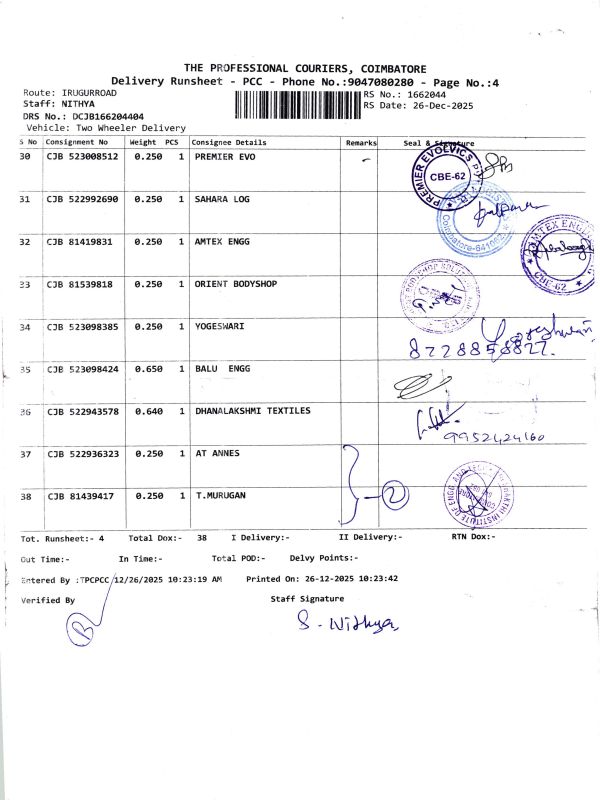 THE PROFESSIONAL COURIERS, COIMBATORE
Delivery Runsheet - PCC - Phone No.:9047080280 - Page No.:4
Route: IRUGURROAD
RS No.: 1662044
Staff: NITHYA
RS Date: 26-Dec-2025
DRS No.: DCJB166204404
Vehicle: Two Wheeler Delivery
S No Consignment No Weight PCS Consignee Details Remarks Seal & Signature
30 CJB 523008512 0.250 1 PREMIER EVO -
PREMIER EVOLVICS
CBE-62
31 CJB 522992690 0.250 1 SAHARA LOG
Coimbatore-641062
32 CJB 81419831 0.250 1 AMTEX ENGG
AMTEX ENGG
CBE-62
33 CJB 81539818 0.250 1 ORIENT BODYSHOP
34 CJB 523098385 0.250 1 YOGESWARI
35 CJB 523098424 0.650 1 BALU ENGG
36 CJB 522943578 0.640 1 DHANALAKSHMI TEXTILES
9952424160
37 CJB 522936323 0.250 1 AT ANNES
38 CJB 81439417 0.250 1 T.MURUGAN
2
Tot. Runsheet:- 4 Total Dox:- 38 I Delivery:- II Delivery:- RTN Dox:-
Out Time:- In Time:- Total POD:- Delvy Points:-
Entered By :TPCPCC/12/26/2025 10:23:19 AM Printed On: 26-12-2025 10:23:42
Verified By Staff Signature
B
S. Nithya